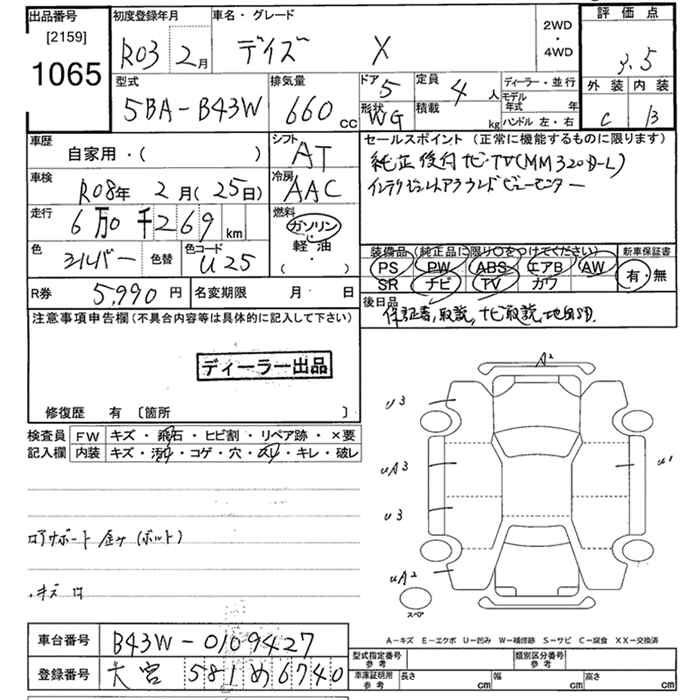 出品番号
[2159]
1065
初度登録年月
R03 2月
車名・グレード
デイズ X
2WD
・
4WD
評価点
3.5
外装 内装
C B
型式
5BA-B43W
排気量
660 CC
ドア 5
形状 WG
定員 4 人
積載 kg
ディーラー・並行
モデル年式 年
ハンドル 左・右
車歴
自家用・( )
シフト
AT
車検
R08年 2月(25日)
冷房
AAC
走行
6万0千269 km
燃料
ガソリン
軽・油
( )
色
シルバー
色替
色コード
U25
セールスポイント (正常に機能するものに限ります)
純正後付ナビ・TV(MM320D-L)
インテリジェントアラウンドビューモニター
装備品 (純正品に限り○をつけてください)
PS PW ABS エアB AW
SR ナビ TV カワ
新車保証書
有・無
R券 5,990円
名変期限 月 日
後日品
保証書,取説,ナビ取説,地図SD.
注意事項申告欄(不具合内容等は具体的に記入して下さい)
ディーラー出品
修復歴 有 〔箇所 〕
検査員 FW キズ・飛石・ヒビ割・リペア跡・×要
記入欄 内装 キズ・汚れ・コゲ・穴・スレ・キレ・破レ
A2
U3
UA3
U1
U3
UA2
スペア
コアサポート 金サ(ボルト)
・キズ 凹
A-キズ E-エクボ U-凹み W-補修跡 S-サビ C-腐食 XX-交換済
車台番号 B43W-0109427
登録番号 大宮 581め6740
型式指定番号 参考
類別区分番号 参考
車庫証明用 参考 長さ cm 幅 cm 高さ cm